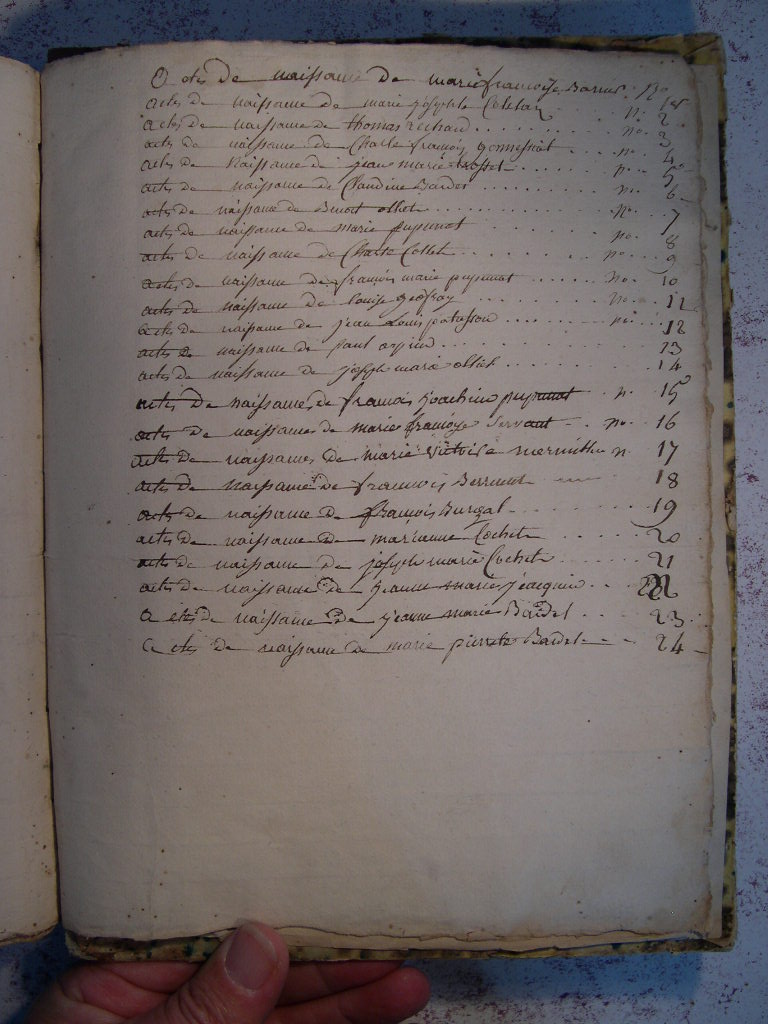 Actes de naissance de marie françoise Barus No 1er
actes de naissance de marie josephte Colletaz n. 2
actes de naissance de thomas richard no. 3
actes de naissance de Charle françois gonnessiat no. 4
actes de naissance de jean marie trosset n. 5
actes de naissance de Claudine Bardet n. 6
actes de naissance de Benoit olliet no. 7
actes de naissance de marie pugunat no. 8
actes de naissance de Charle Collet no. 9
actes de naissance de françois marie pugunat no. 10
actes de naissance de louise geofray no. 11
actes de naissance de jean Louis no. 12
actes de naissance de paul 13
actes de naissance de joseph marie olliet 14
actes de naissance de françois joachim pugunat n. 15
actes de naissance de marie françoise Servant no. 16
actes de naissance de marie victoire mermillon n. 17
actes de naissance de françois 18
actes de naissance de françois Burgal 19
actes de naissance de marianne Cochet 20
actes de naissance de joseph marie Cochet 21
actes de naissance de jeanne marie jacquin 22
actes de naissance de jeanne marie Baidel 23
actes de naissance de marie pierrete Baidel 24